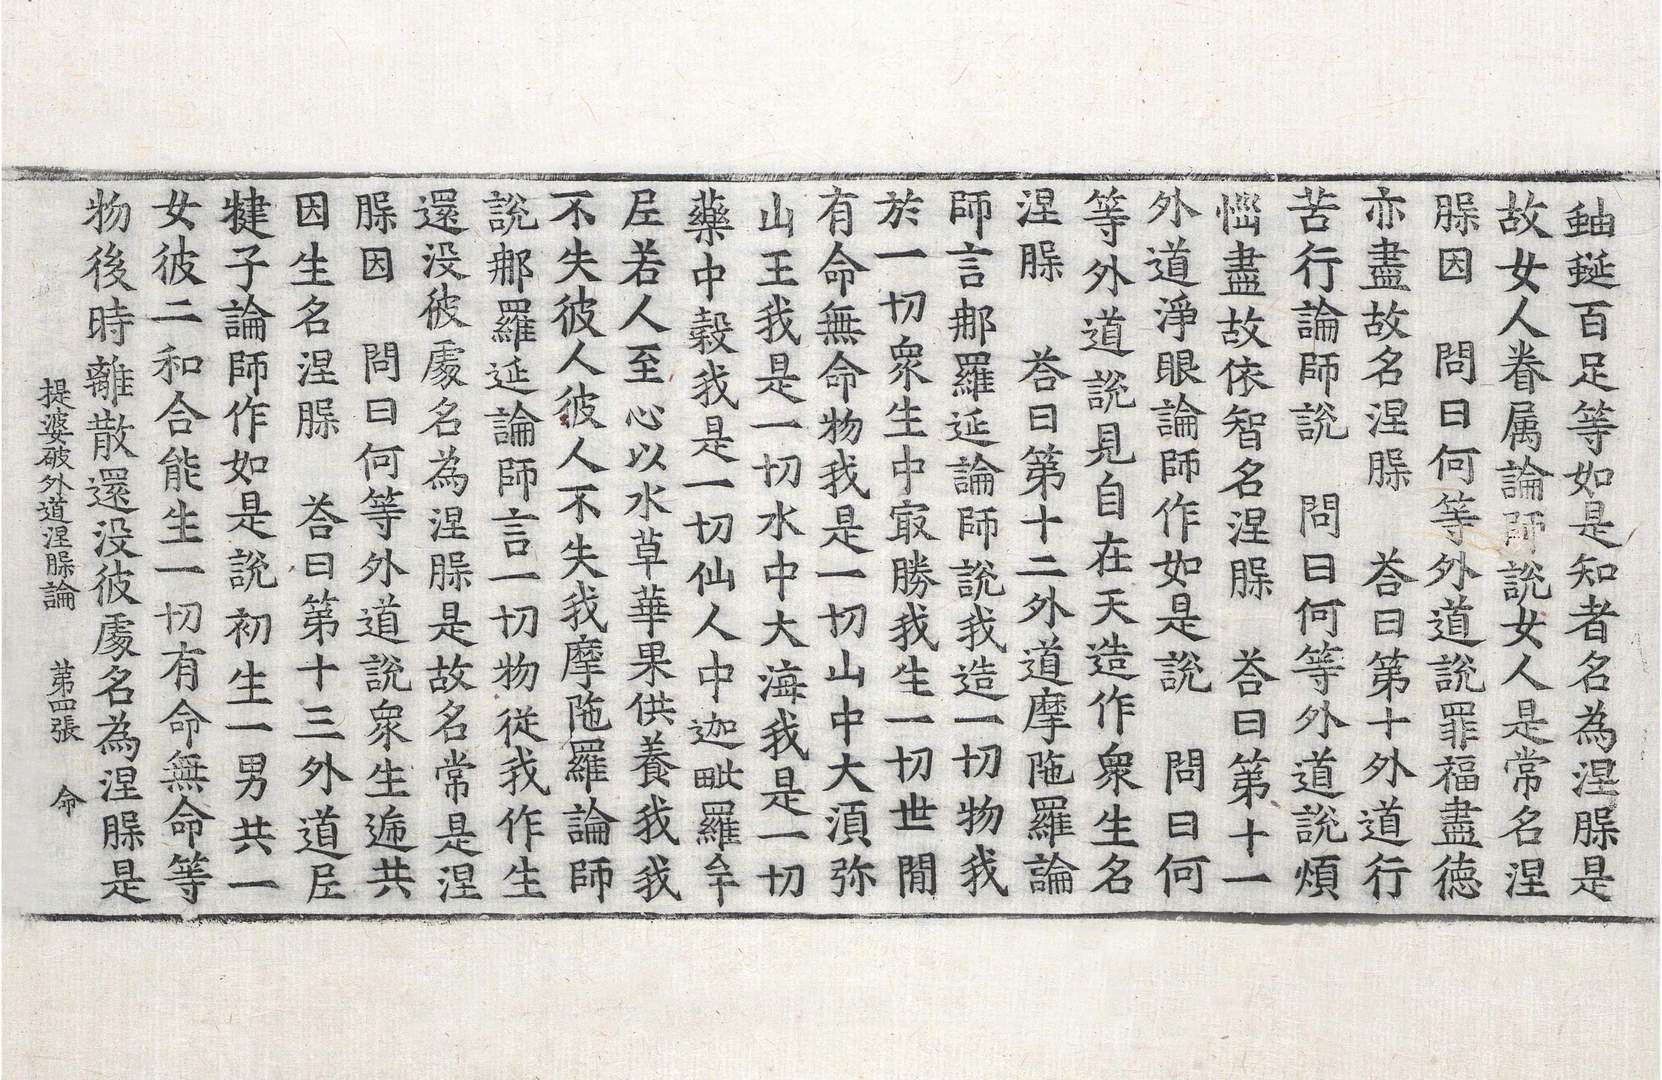 蚰蜒百足等如是知者名為涅槃是
故女人眷属論師說女人是常名涅
槃因　問曰何等外道說罪福盡德
亦盡故名涅槃　荅曰第十外道行
苦行論師說　問曰何等外道說煩
惱盡故依智名涅槃　荅曰第十一
外道淨眼論師作如是說　問曰何
等外道說見自在天造作衆生名
涅槃　荅曰第十二外道摩陁羅論
師言那羅延論師說我造一切物我
於一切衆生中寂勝我生一切世間
有命無命物我是一切山中大湏弥
山王我是一切水中大海我是一切
藥中穀我是一切仙人中迦毗羅牟
尼若人至心以水草華果供養我我
不失彼人彼人不失我摩陁羅論師
說那羅延論師言一切物從我作生
還没彼處名為涅槃是故名常是涅
槃因　問曰何等外道說衆生遞共
因生名涅槃　荅曰第十三外道尼
揵子論師作如是說初生一男共一
女彼二和合能生一切有命無命等
物後時離散還没彼處名為涅槃是
提婆破外道涅槃論　第四張　命